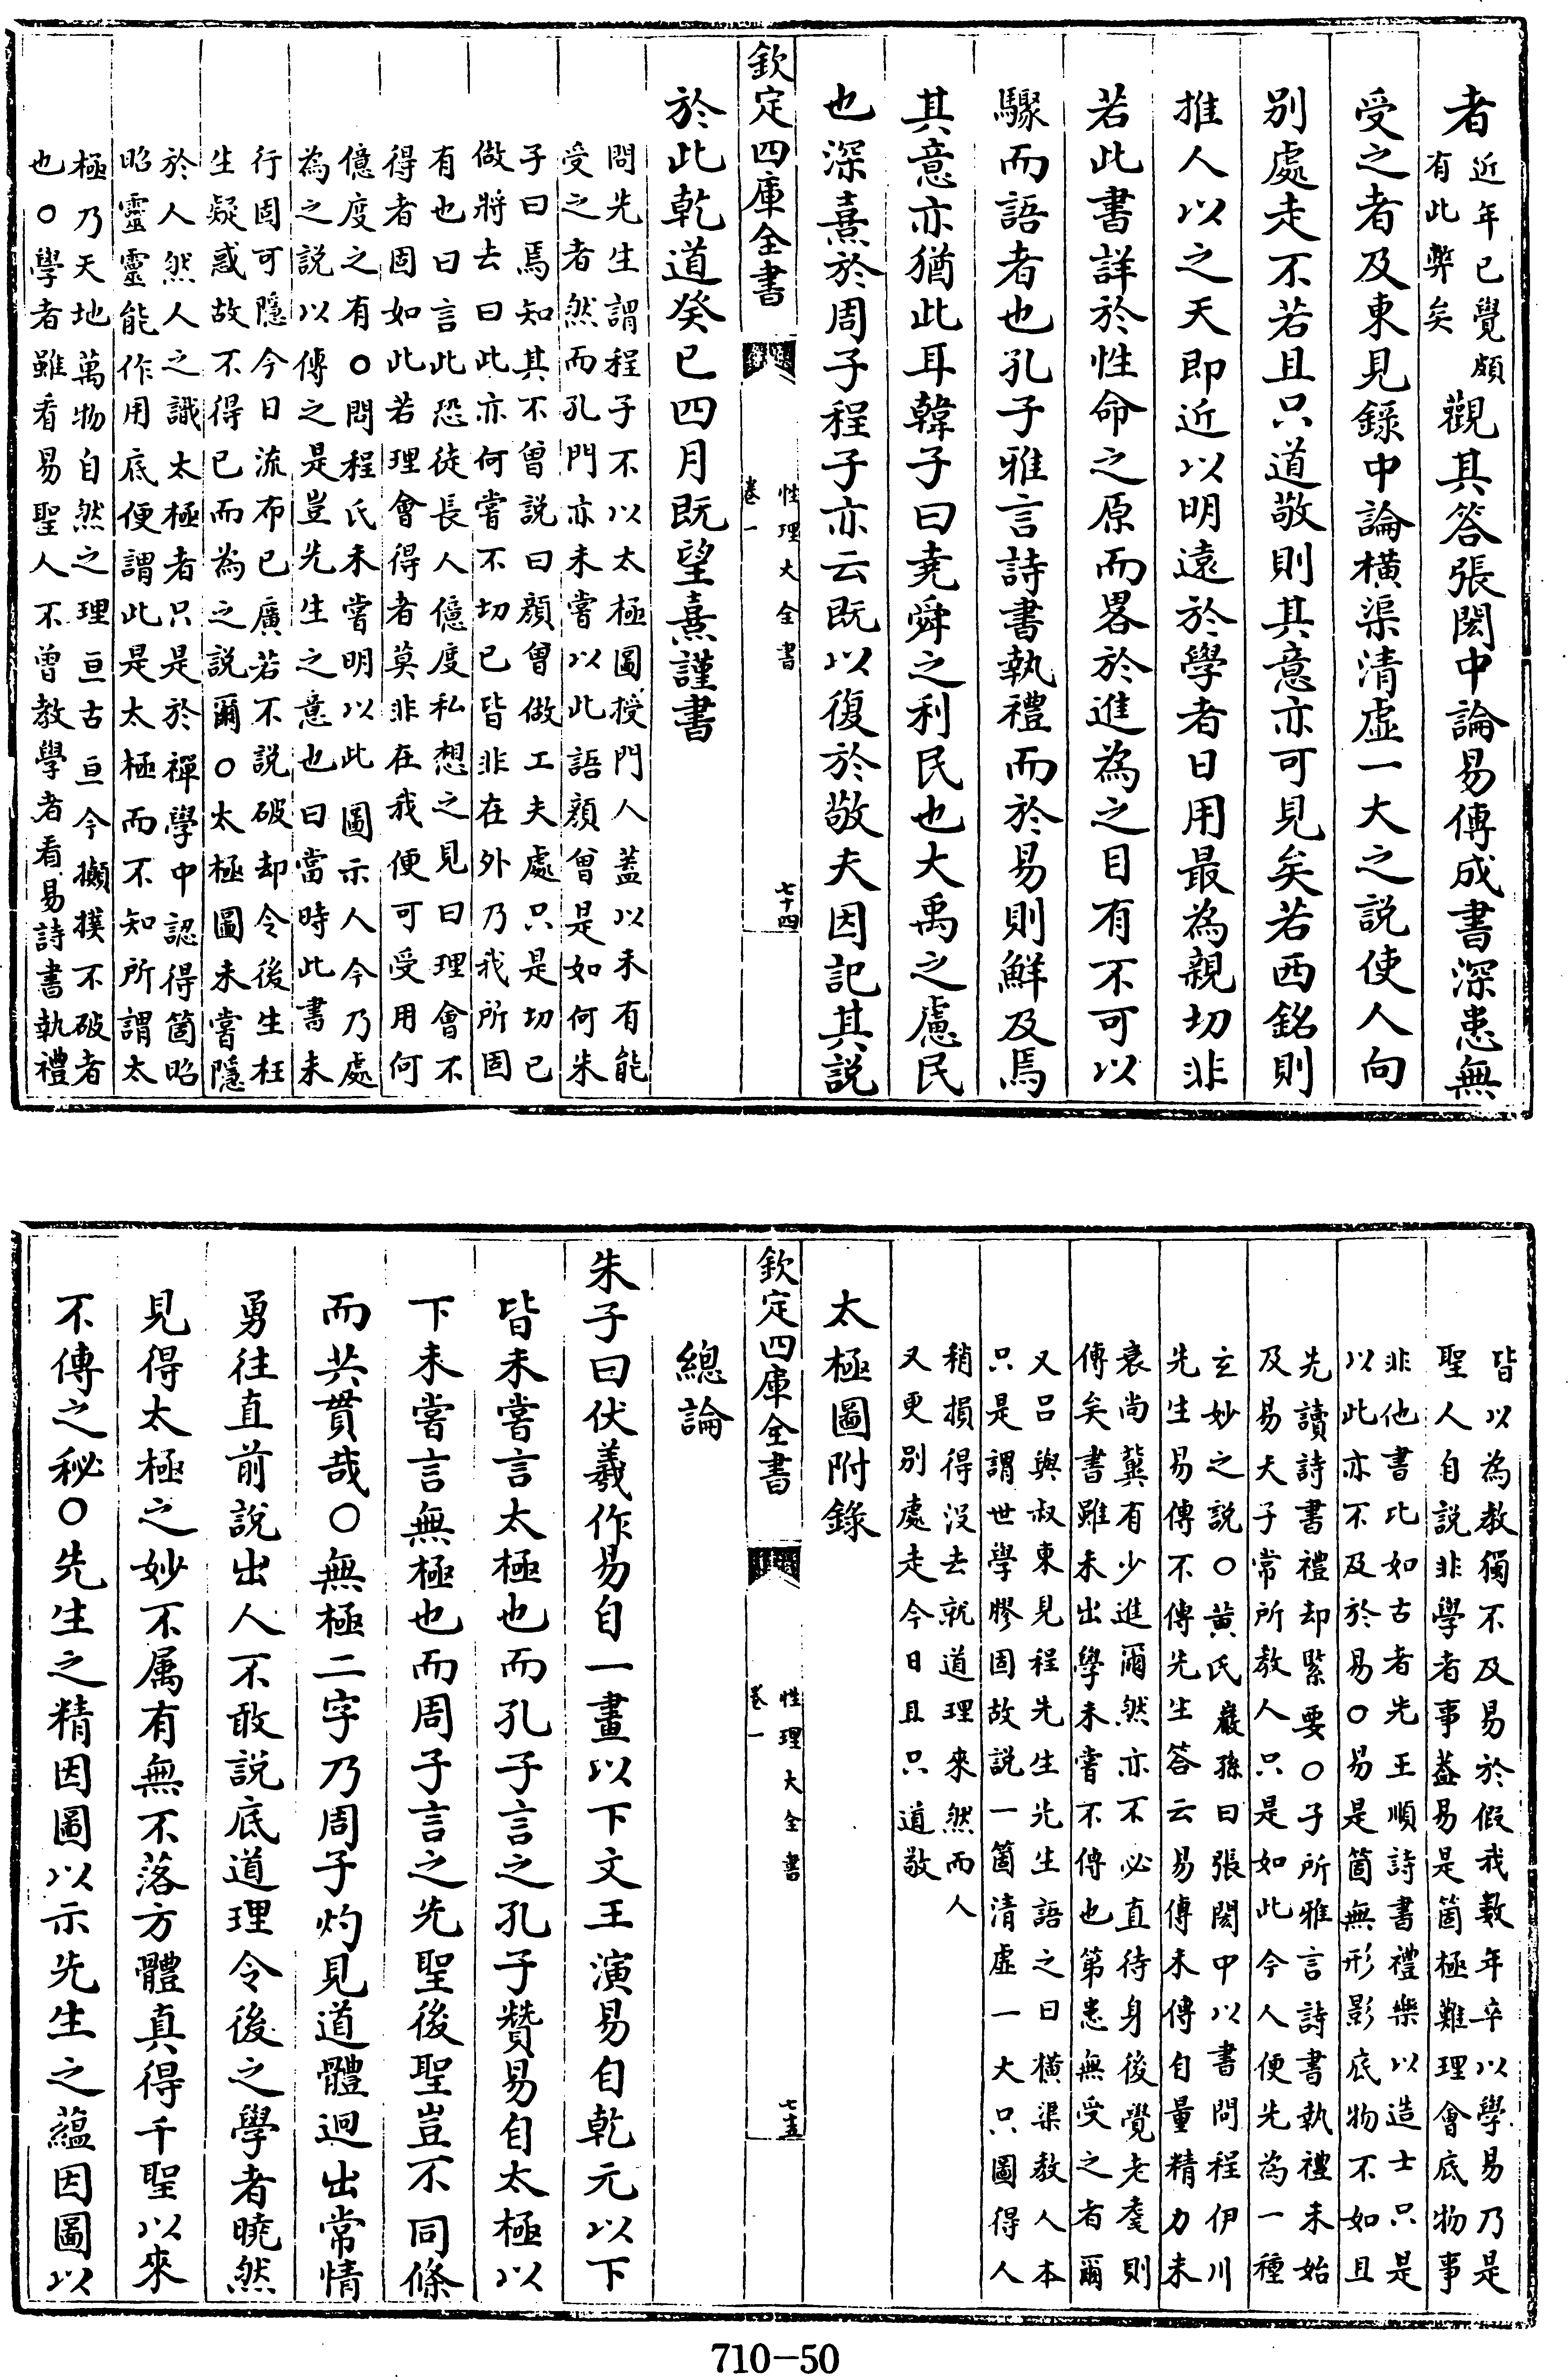 者近年已覺頗有此弊矣觀其答張閎中論易傳成書深患無
受之者及東見錄中論橫渠清虛一大之說使人向
別處走不若且只道敬則其意亦可見矣若西銘則
推人以之天即近以明遠於學者日用最為親切非
若此書詳於性命之原而畧於進為之目有不可以
驟而語者也孔子雅言詩書執禮而於易則鮮及焉
其意亦猶此耳韓子曰堯舜之利民也大禹之慮民
也深熹於周子程子亦云既以復於敬夫因記其說
欽定四庫全書
性理大全書
卷一
七十四
於此乾道癸巳四月既望熹謹書
問先生謂程子不以太極圖授門人蓋以未有能
受之者然而孔門亦未嘗以此語顏曾是如何朱
子曰焉知其不曾說曰顏曾做工夫處只是切已
做將去曰此亦何嘗不切已皆非在外乃我所固
有也曰言此恐徒長人億度私想之見曰理會不
得者固如此若理會得者莫非在我便可受用何
億度之有○問程氏未嘗明以此圖示人今乃處
為之說以傳之是豈先生之意也曰當時此書未
行固可隱今日流布已廣若不說破却令後生枉
生疑惑故不得已而為之說爾○太極圖未嘗隱
於人然人之識太極者只是於禪學中認得箇昭
昭靈靈能作用底便謂此是太極而不知所謂太
極乃天地萬物自然之理亘古亘今攧撲不破者
也○學者雖看易聖人不曾教學者看易詩書執禮
皆以為教獨不及易於假我數年卒以學易乃是
聖人自說非學者事葢易是箇極難理會底物事
非他書比如古者先王順詩書禮樂以造士只是
以此亦不及於易○易是箇無形影底物不如且
先讀詩書禮却緊要○子所雅言詩書執禮未始
及易夫子常所教人只是如此今人便先為一種
玄妙之說○黃氏巖孫曰張閎中以書問程伊川
先生易傳不傳先生答云易傳未傳自量精力未
衰尚冀有少進爾然亦不必直待身後覺老耄則
傳矣書雖未出學未嘗不傳也第患無受之者爾
又呂與叔東見程先生先生語之曰橫渠教人本
只是謂世學膠固故說一箇清虛一大只圖得人
稍損得沒去就道理來然而人
又更別處走今日且只道敬
太極圖附錄
欽定四庫全書
性理大全書
卷一
七十五
總論
朱子曰伏羲作易自一畫以下文王演易自乾元以下
皆未嘗言太極也而孔子言之孔子贊易自太極以
下未嘗言無極也而周子言之先聖後聖豈不同條
而共貫哉○無極二字乃周子灼見道體迥出常情
勇往直前說出人不敢說底道理令後之學者曉然
見得太極之妙不属有無不落方體真得千聖以來
不傳之秘○先生之精因圖以示先生之蘊因圖以
710-50